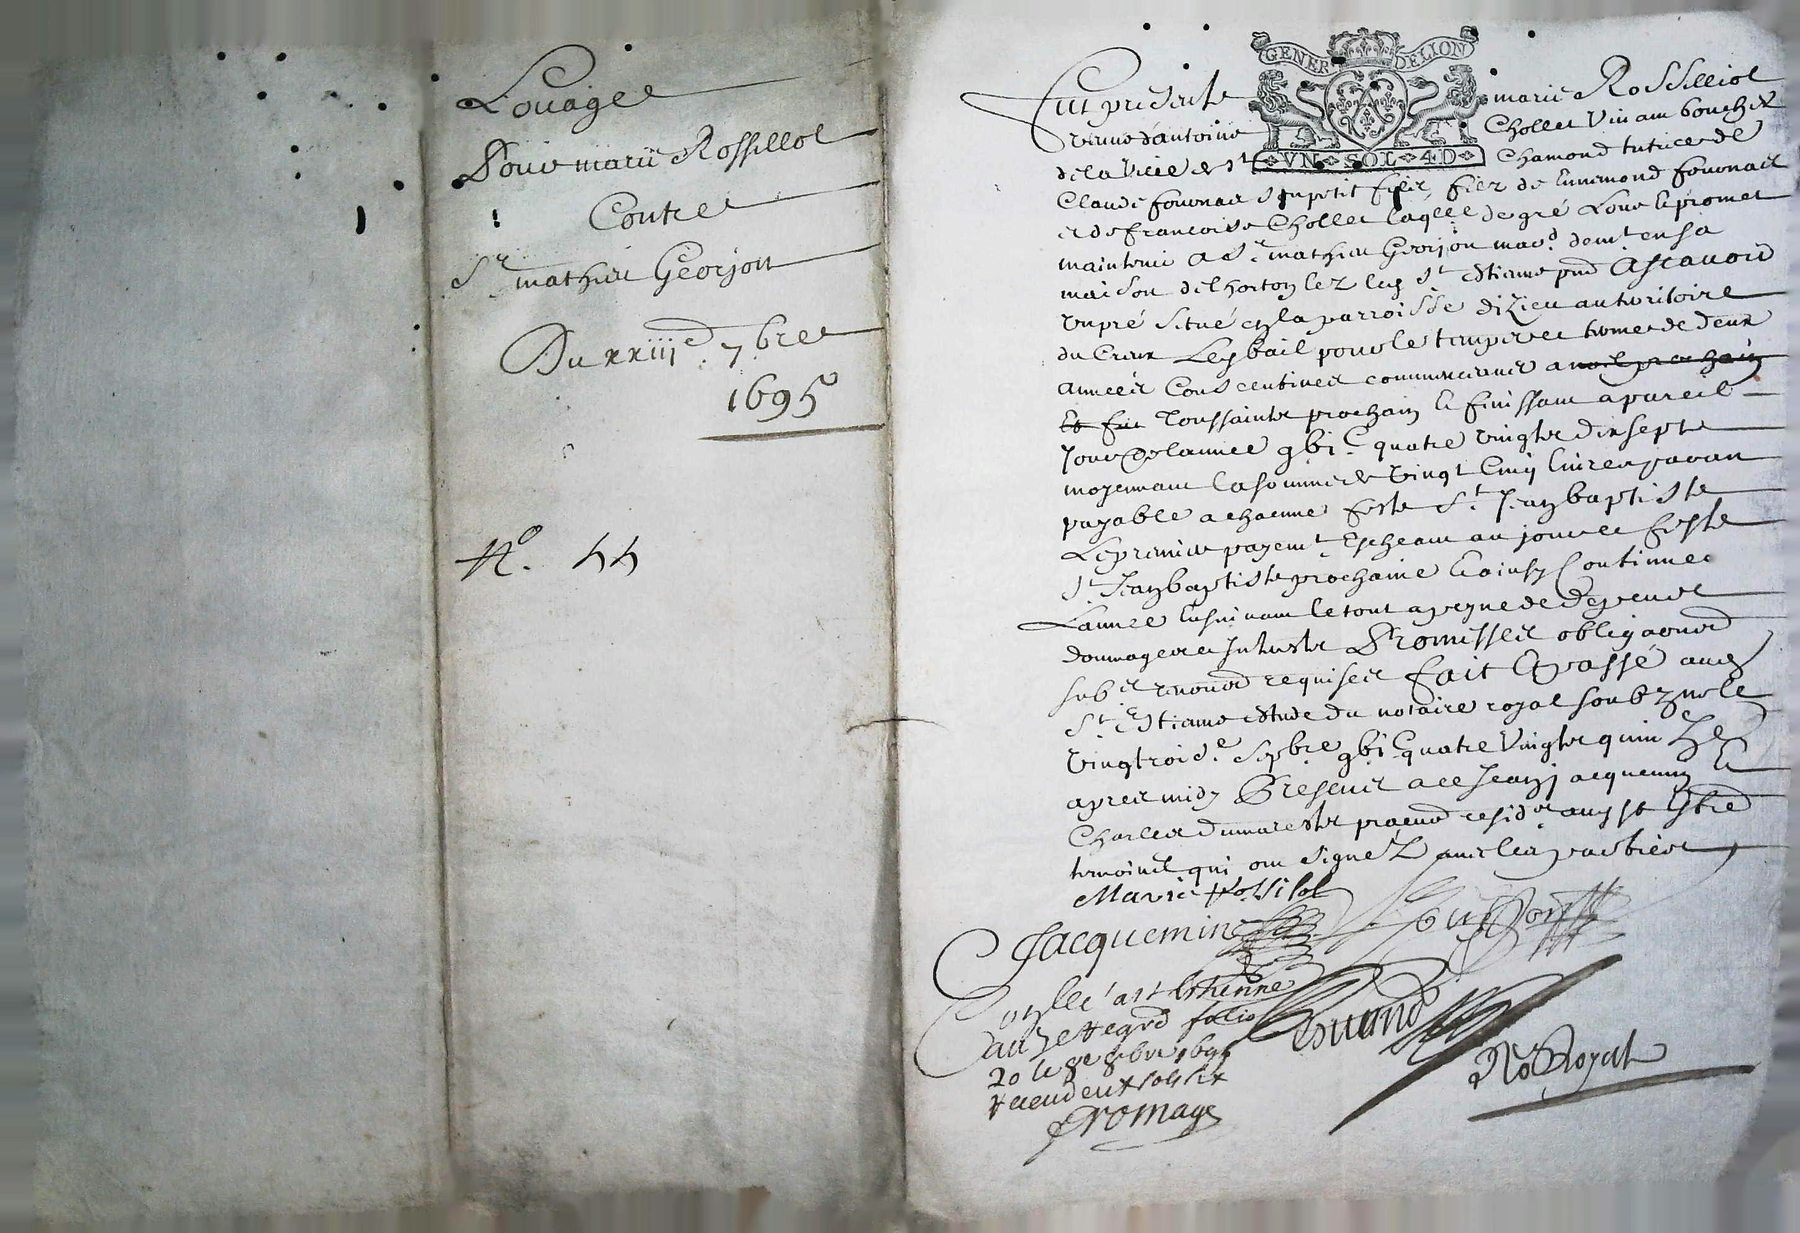 Louage
Pour marie Rossillol
Contre
Sr mathieu Georjon
Du xxiije 7bre
1695
No. 44
GENER DELION
VN SOL 4D
Fut presente marie Rossilliol
veuve d'antoine Chollet vivant boucher
de la ville de St Chamond tutrice de
Claude fournas son petit filz, filz de Ennemond fournas
et de francoise Chollet laqlle de gré Loue et promet
maintenir a Sr mathieu Georjon mard demt en sa
maison delhorton lez led St Estienne pnt Ascavoir
un pré situé en la parroisse dizieu au teritoire
du Creux Led bail pour le temps et terme de deux
années Consecutives commencantes a noel prochain
et fin Toussaintz prochain et finissant a pareil
jour de lannee gbic quatre vingtz dix sept
moyennant la somme de vingt Cinq livres par an
payable a chacune feste St Jean baptiste
Le premier payemt Escheant au jour et feste
St Jean baptiste prochaine et ainsy Continuer
Lannee Ensuivant le tout a peyne de despens
dommages et Interestz Promesses obligaons
submes renons requises fait et passé aud
St Estienne estude du notaire royal soubzné le
vingtroise sepbre gbic quatre vingtz quinze
apres midy Presens a ce Jean jacquemin et
Charles dumarestz residt aud st
temoins qui ont signé avec les parties
Marie Rossilol
Jacquemin Georjon
Conlle a st Estienne
au 3e regrd folio
20 le 8e 8bre 1695
receu deux sols six
fromage
No Royal